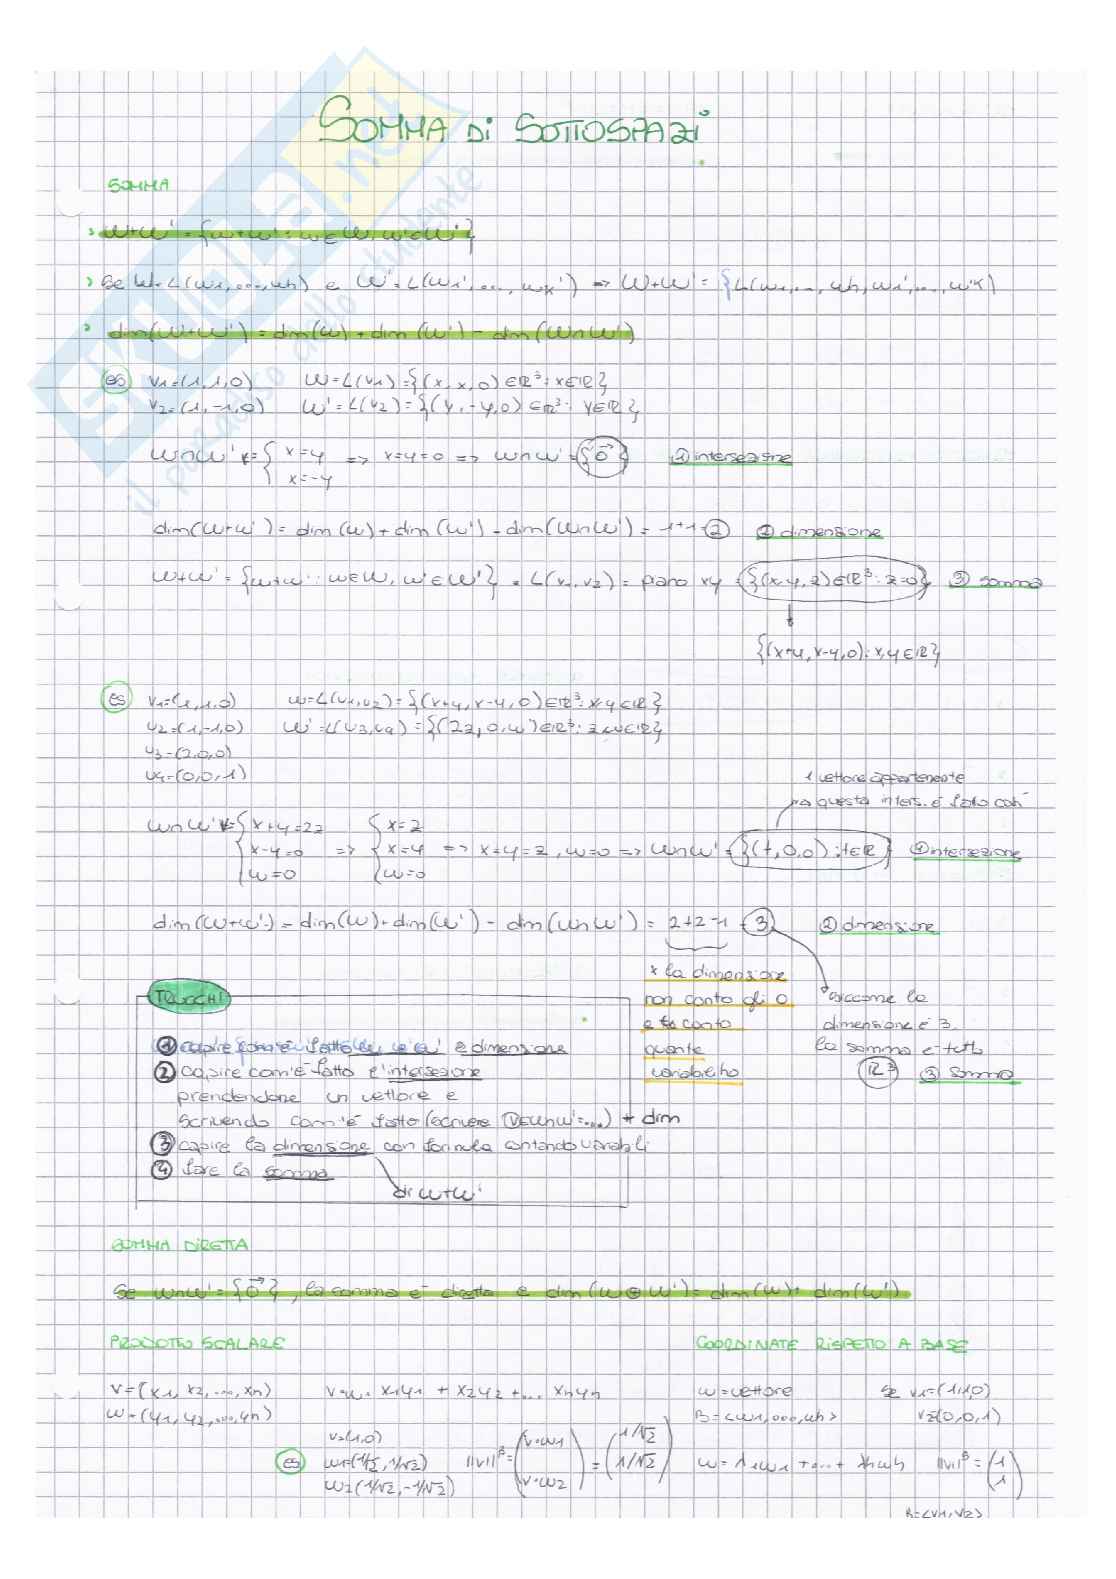 SOMMA Di SOTTOSPAZi
SOMMA
W+W' = {w+w' : w∈W, w'∈W'}
Se W=L(w1,...,wh) e W'=L(w1',...,wk') => W+W' = {L(w1,...,wh,w1',...,w'k)
dim(W+W') = dim(W) + dim(W') - dim(W∩W')
es v1=(1,1,0) W=L(v1)={(x,x,0)∈R³: x∈R}
v2=(1,-1,0) W'=L(v2)={(y,-y,0)∈R³: y∈R}
W∩W' = { x=y => x=y=0 => W∩W'={0⃗} ① intersezione
x=-y
dim(W+W') = dim(W) + dim(W') - dim(W∩W') = 1+1=2 ② dimensione
W+W' = {w+w' : w∈W, w'∈W'} = L(v1,v2) = piano xy = {(x,y,z)∈R³: z=0} ③ somma
{(x+y, x-y, 0): x,y∈R}
es v1=(1,1,0) W=L(v1,v2)={(x+y, x-y, 0)∈R³: x,y∈R}
v2=(1,-1,0) W'=L(v3,v4)={(2z,0,w)∈R³: z,w∈R}
v3=(2,0,0)
v4=(0,0,1)
1 vettore appartenente
a questa inters. è fatto così
W∩W' = { x+y=2z { x=z
x-y=0 => x=y => x=y=z, w=0 => W∩W' = {(t,0,0): t∈R} ① intersezione
w=0 w=0
dim(W+W') = dim(W) + dim(W') - dim(W∩W') = 2+2-1 = 3 ② dimensione
* la dimensione
non conto gli 0
e conto
quante
variabili ho
siccome la
dimensione è 3
la somma è tutto
R³ ③ somma
TRUCCHI
① capire com'è fatto W e W' e dimensione
② capire com'è fatto l'intersezione
prendendone un vettore e
scrivendo com'è fatto (scrivere v∈W∩W'=...) + dim
③ capire la dimensione con formula contando variabili
④ fare la somma
di W+W'
SOMMA DiRETTA
Se W∩W' = {0⃗}, la somma è diretta e dim(W⊕W') = dim(W)+ dim(W')
PRODOTTO SCALARE
COORDINATE RiSPETTO A BASE
v=(x1,x2,...,xn) v·w= x1y1 + x2y2 +... xnyn
w=(y1,y2,...,yn)
w=vettore se v1=(1,1,0)
B=<w1,...,wh> v2=(0,0,1)
v=(1,0)
es w1=(1/√2,1/√2) ||v||ᴮ = (v·w1 v·w2) = (1/√2 1/√2)
w2(1/√2,-1/√2)
w=λ1w1 +...+ λhwh ||v||ᴮ = (1 1)
B=<v1,v2>